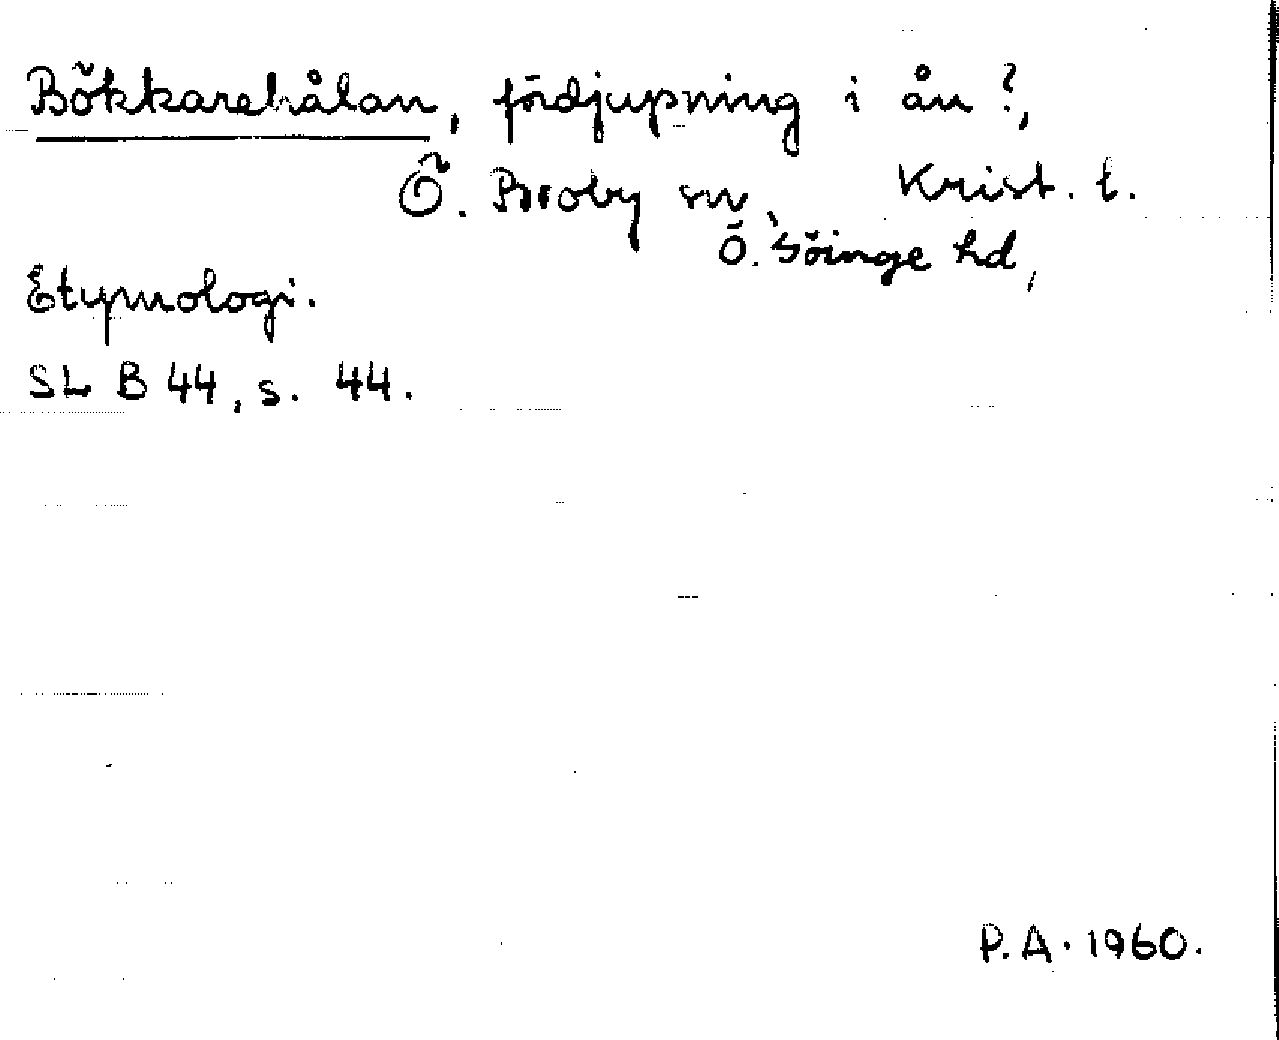 Bökkarehålan, fördjupning i ån?,
Ö. Broby sn, Krist. l.
Ö. Göinge hd,
Etymologi.
SL B 44, s. 44.
P.A. 1960.